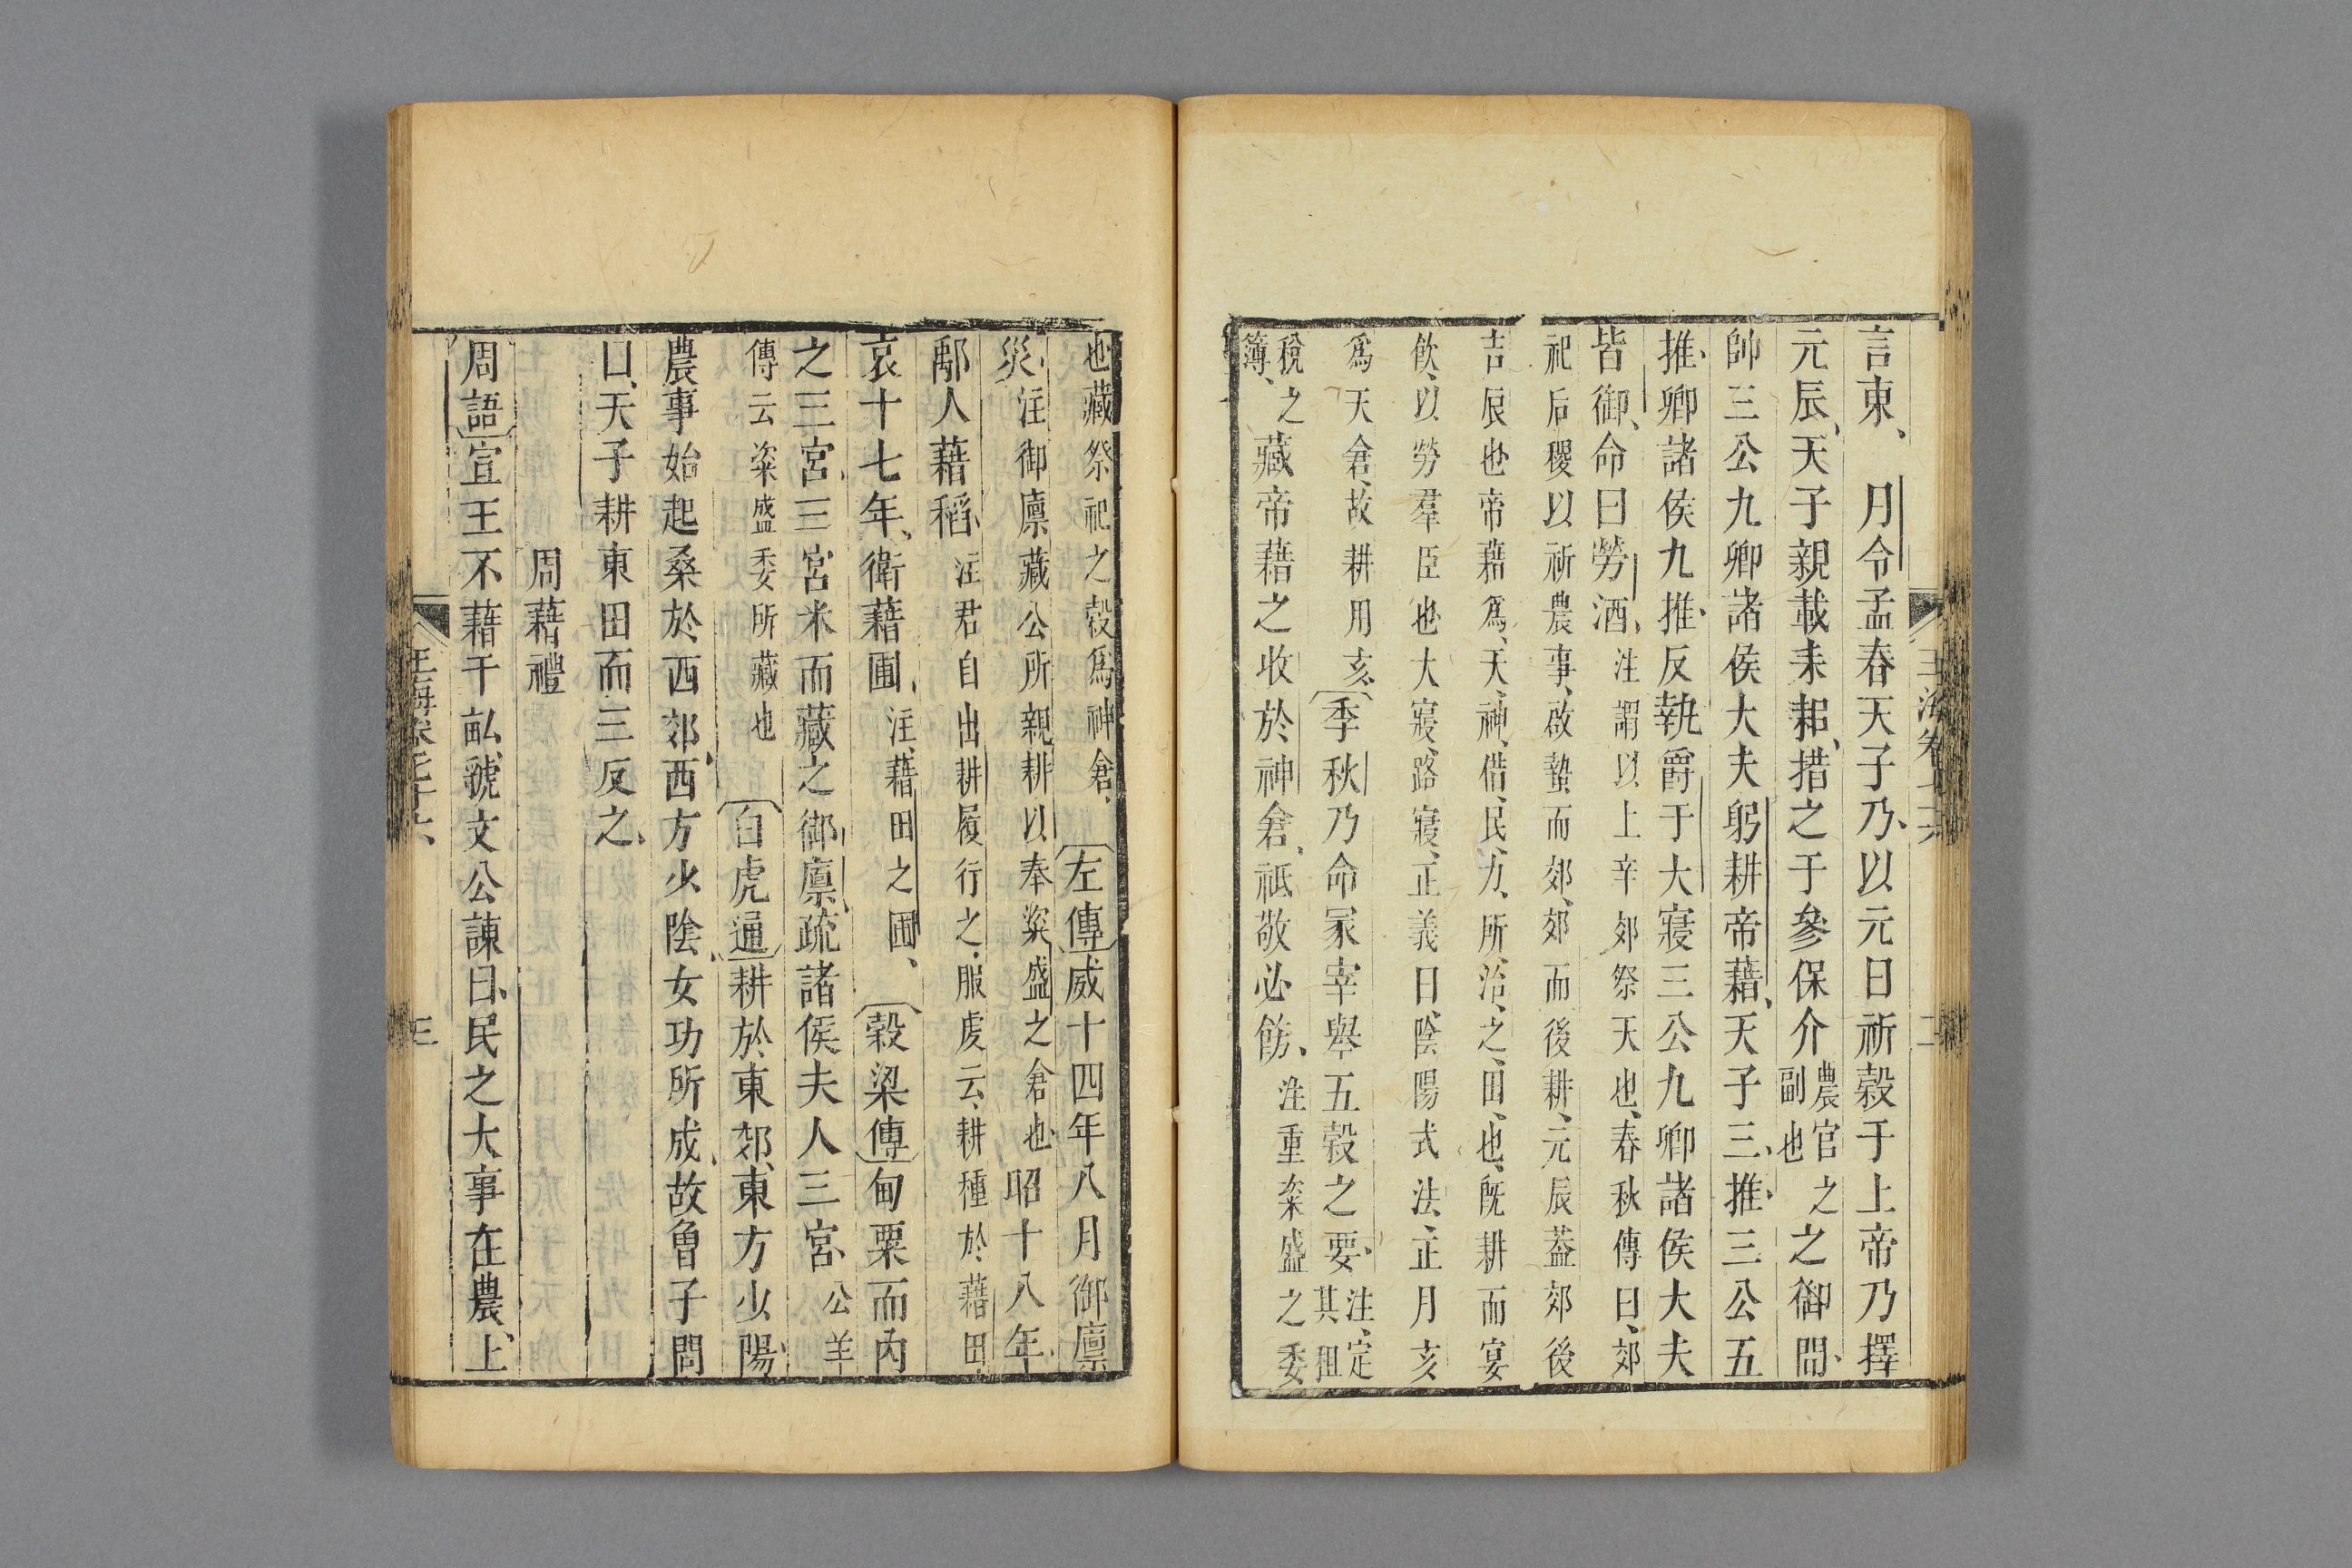 言東、月令孟春天子乃、以元日祈穀于上帝乃擇
元辰、天子親載耒耜、措之于參保介農官之副也之御間、
帥三公九卿諸侯大夫躬耕帝藉、天子三、推、三公五
推、卿諸侯九推、反執爵于大寢三公九卿諸侯大夫
皆御、命曰勞酒、注謂以上辛郊祭天也、春秋傳曰、郊
祀后稷以祈農事、啟蟄而郊、郊而後耕、元辰蓋郊後
吉辰也帝藉爲、天、神、借、民、力、所、治、之、田、也、既耕而宴
飲、以勞羣臣也大寢、路寢、正義曰、陰陽式法、正月亥
爲天倉、故耕用亥、季秋乃命冢宰舉五穀之要、注、定其租
稅之簿、藏帝藉之收於神倉、祗敬必飭、注重粢盛之委
也藏祭祀之穀爲神倉、左傳威十四年八月御廩
災、注御廩藏公所親耕以奉粢盛之倉也、昭十八年、
鄅人藉稻、注君自出耕履行之、服虔云、耕種於藉田、
哀十七年、衛藉圃、注、藉田之圃、穀梁傳甸粟而內
之三宮、三宮米而藏之御廩、疏諸侯夫人三宮、公羊
傳云粢盛委所藏也白虎通耕於東郊、東方少陽、
農事始起桑於西郊、西方少陰、女功所成、故曾子問
曰、天子耕東田而三反之、
周藉禮
周語宣王不藉千畝、虢文公諫曰、民之大事在農、上
玉海卷七十六
二
玉海卷七十六
三